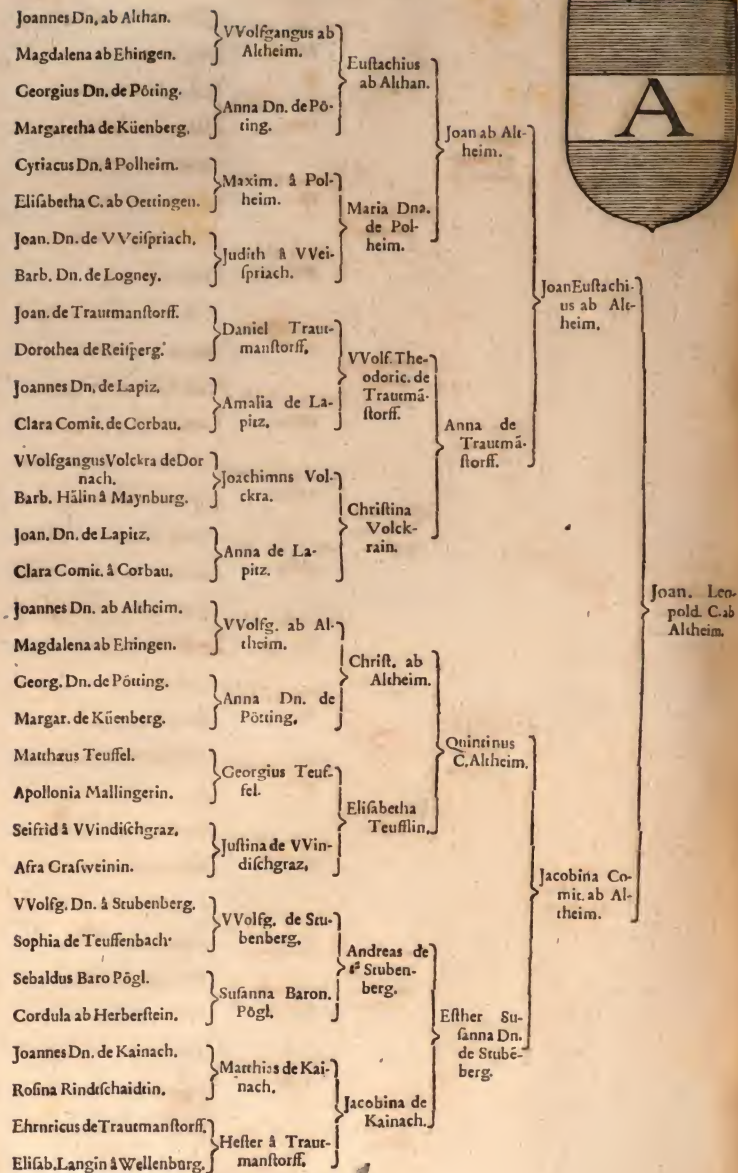 Joannes Dn. ab Althan.
Magdalena ab Ehingen.
Georgius Dn. de Pôting.
Margaretha de Küenberg.
Cyriacus Dn. â Polheim.
Elisabetha C. ab Oettingen.
Joan. Dn. de VVeiſpriach.
Barb. Dn. de Logney.
Joan. de Trautmanſtorff.
Dorothea de Reiſperg.
Joannes Dn. de Lapiz.
Clara Comit. de Corbau.
VVolfgangus Volckra de Dor
nach.
Barb. Hâlin â Maynburg.
Joan. Dn. de Lapitz.
Clara Comit. â Corbau.
Joannes Dn. ab Altheim.
Magdalena ab Ehingen.
Georg. Dn. de Pôtting.
Margar. de Küenberg.
Matthæus Teuffel.
Apollonia Mallingerin.
Seifrid â VVindiſchgraz.
Afra Graſweinin.
VVolfg. Dn. â Stubenberg.
Sophia de Teuffenbach
Sebaldus Baro Pôgl.
Cordula ab Herberſtein.
Joannes Dn. de Kainach.
Roſina Rindtſchaidtin.
Ehrnricus de Trautmanſtorff.
Eliſab. Langin â Wellenburg.
VVolfgangus ab
Altheim.
Anna Dn. de Pô-
ting.
Maxim. â Pol-
heim.
Judith â VVei-
ſpriach.
Daniel Traut-
manſtorff.
Amalia de La-
pitz.
Joachimns Vol-
ckra.
Anna de La-
pitz.
VVolfg. ab Al-
theim.
Anna Dn. de
Pötting.
Georgius Teuf-
fel.
Juſtina de VVin-
diſchgraz.
VVolfg. de Stu-
benberg.
Suſanna Baron.
Pôgl.
Matthias de Kai-
nach.
Heſter â Traut-
manſtorff.
Euſtachius
ab Althan.
Maria Dna.
de Pol-
heim.
VVolf. The-
odoric. de
Trautmã-
ſtorff.
Chriſtina
Volck-
rain.
Chriſt. ab
Altheim.
Eliſabetha
Teufflin.
Andreas de
Stuben-
berg.
Jacobina de
Kainach.
Joan ab Alt-
heim.
Anna de
Trautmã-
ſtorff.
Quintinus
C. Altheim.
Eſther Su-
ſanna Dn.
de Stubē-
berg.
Joan Euſtachi-
us ab Alt-
heim.
Jacobina Co-
mit. ab Al-
theim.
Joan. Leo-
pold. C. ab
Altheim.
A